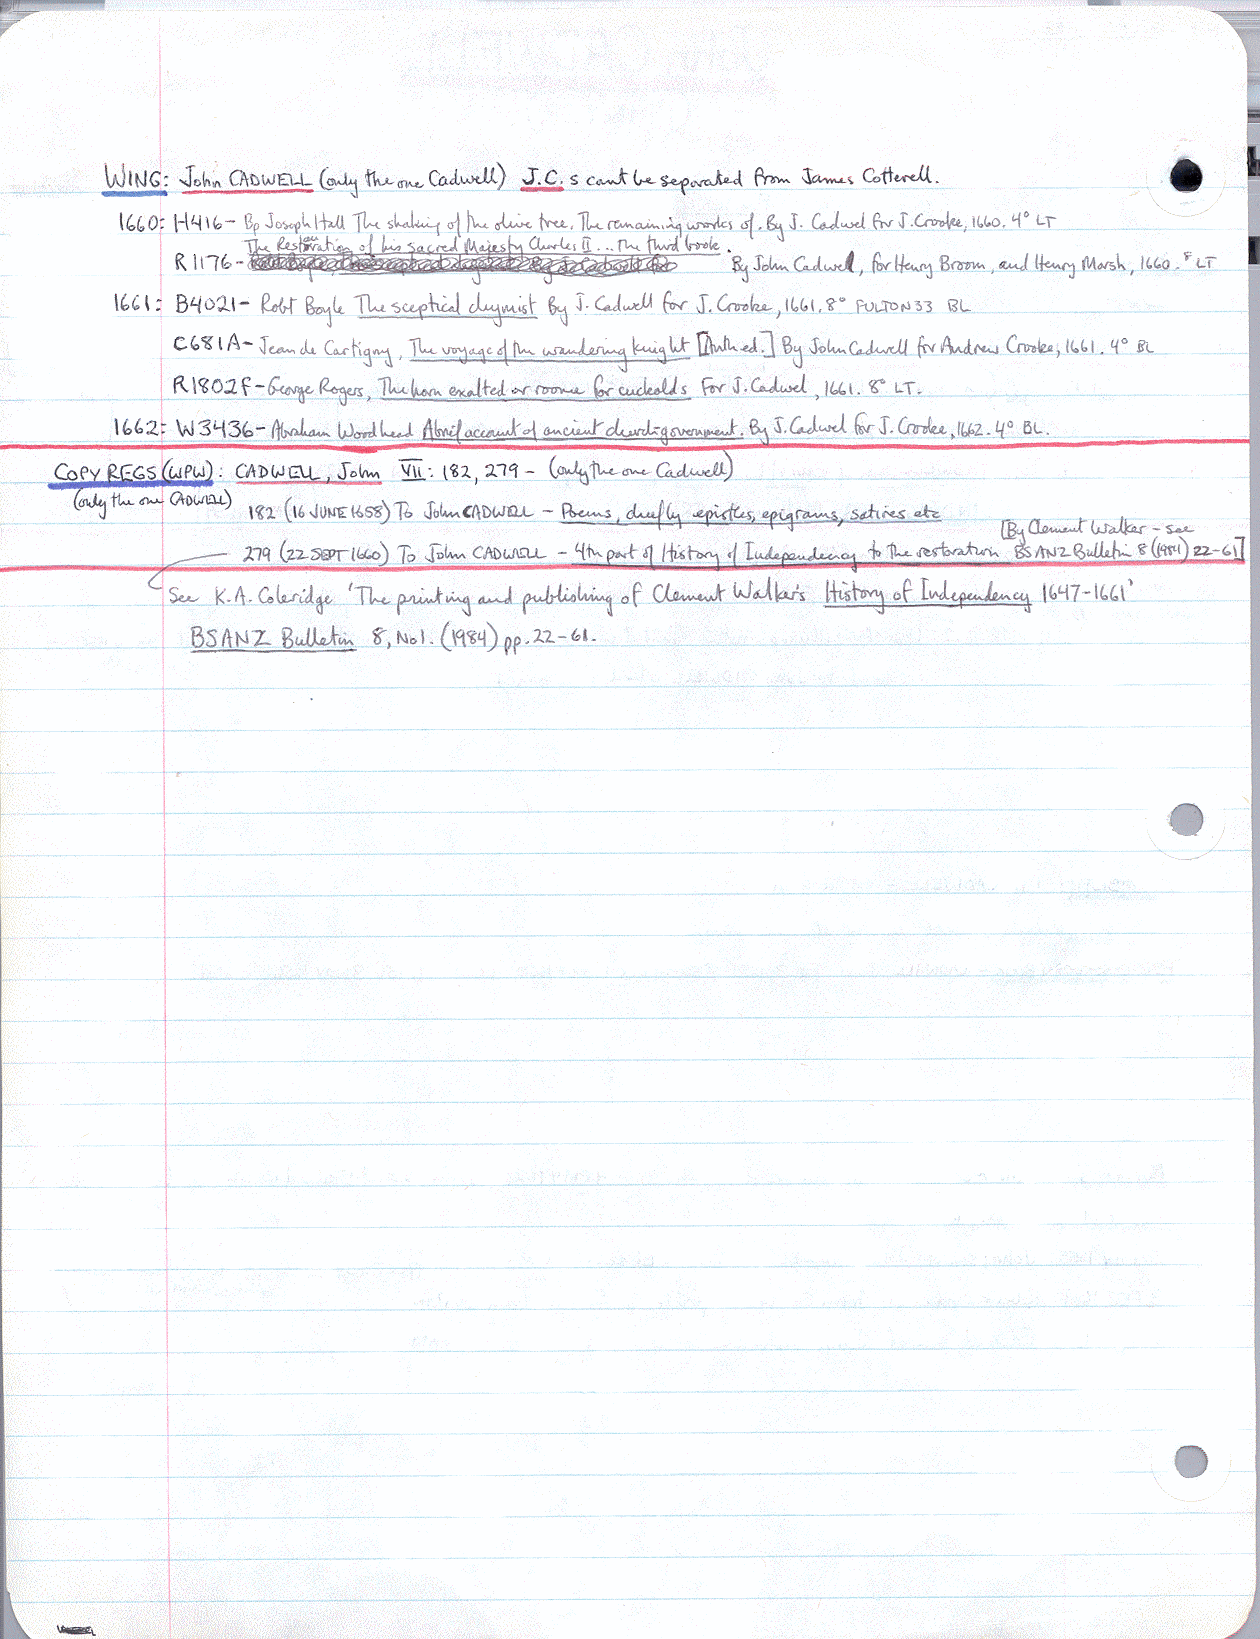 WING: John CADWELL (only the one Cadwell) J.C.s cant be separated from James Cotterell.
1660: H416 - Bp Joseph Hall The shaking of the olive tree. The remaining works of. By J. Cadwel for J. Crooke, 1660. 4° LT
The Restauration of his sacred Majesty Charles II ... The third booke.
R1176 - By John Cadwel, for Henry Broom, and Henry Marsh, 1660. 8° LT
1661: B4021 - Robt Boyle The sceptical chymist By J. Cadwell for J. Crooke, 1661. 8° FULTON 33 BL
C681A - Jean de Cartigny, The voyage of the wandering knight [Anth ed.] By John Cadwell for Andrew Crooke, 1661. 4° BL
R1802F - George Rogers, The horn exalted or roome for cuckolds For J. Cadwel, 1661. 8° LT.
1662: W3436 - Abraham Woodhead A brief account of ancient church-government. By J. Cadwel for J. Crooke, 1662. 4° BL.
COPY REGS (WPW): CADWELL, John VII: 182, 279 - (only the one Cadwell)
(only the one CADWELL)
182 (16 JUNE 1658) To John CADWELL - Poems, chiefly epistles, epigrams, satires etc
[By Clement Walker - see
279 (22 SEPT 1660) To John CADWELL - 4th part of History of Independency to the restoration BSANZ Bulletin 8 (1984) 22-61]
See K.A. Coleridge 'The printing and publishing of Clement Walker's History of Independency 1647-1661'
BSANZ Bulletin 8, No 1. (1984) pp. 22-61.